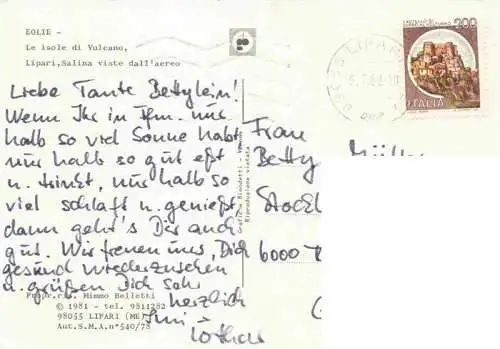 EOLIE -
Le isole di Vulcano,
Lipari, Salina viste dall'aereo
Liebe Tante Bettylein!
Wenn Ihr in Ffm. nur
halb so viel Sonne habt,
nur halb so gut eßt
u. trinkt, nur halb so
viel schlaft u. genießt,
dann geht's Dir auch
gut. Wir freuen uns, Dich
gesund wiederzusehen
u. grüßen Dich sehr
herzlich
Lothar
Propr. ris. Mimmo Belletti
© 1981 - tel. 9811282
98055 LIPARI (ME)
Aut.S.M.A. n°540/78
Grafica Biondetti - Verona
Riproduzione vietata
LIPARI
200
ITALIA
Frau
Betty
6000